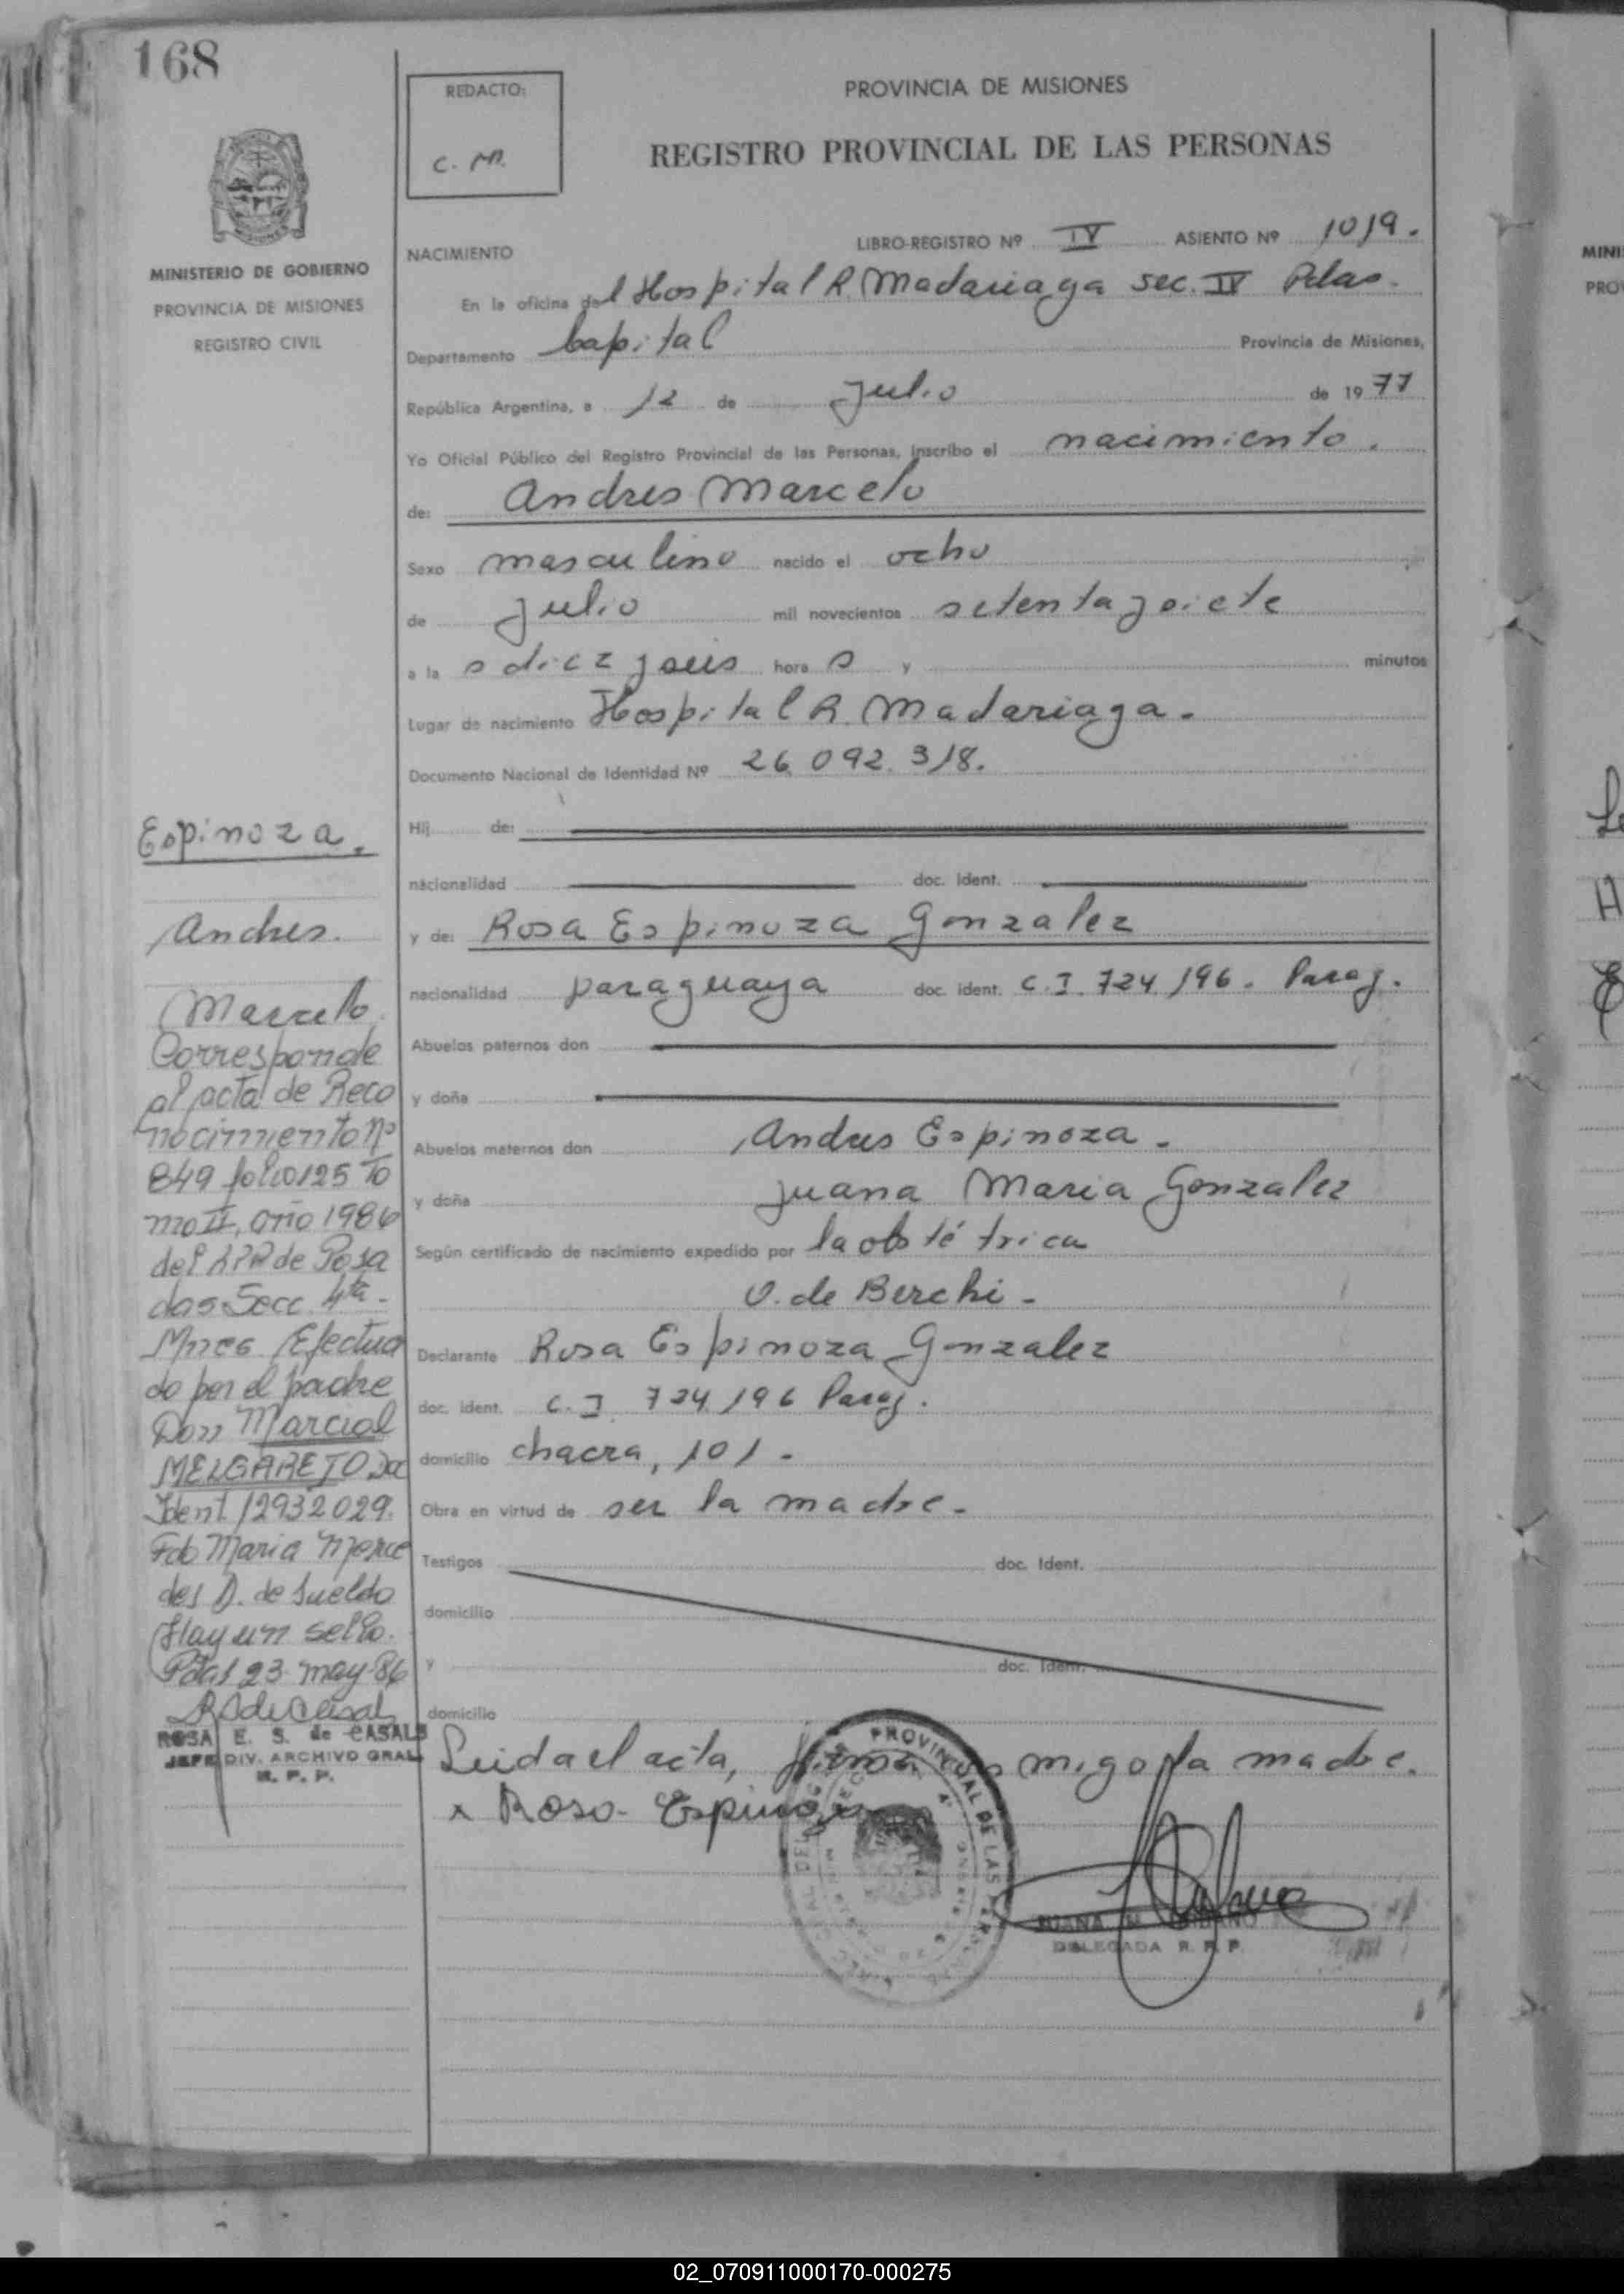 168
MINISTERIO DE GOBIERNO
PROVINCIA DE MISIONES
REGISTRO CIVIL
REDACTO:
C. M.
PROVINCIA DE MISIONES
REGISTRO PROVINCIAL DE LAS PERSONAS
NACIMIENTO
LIBRO-REGISTRO Nº IV ASIENTO Nº 1019.
En la oficina del Hospital R. Madariaga sec. IV Pdas.
Departamento Capital Provincia de Misiones,
República Argentina, a 12 de Julio de 1977
Yo Oficial Público del Registro Provincial de las Personas, inscribo el nacimiento.
de: Andres Marcelo
Sexo masculino nacido el ocho
de Julio mil novecientos setenta y siete
a la s diez y seis hora s y minutos
Lugar de nacimiento Hospital R. Madariaga.
Documento Nacional de Identidad Nº 26.092.318.
Hij de:
nacionalidad doc. Ident.
y de: Rosa Espinoza Gonzalez
nacionalidad paraguaya doc. ident. C.I. 724.196. Parag.
Abuelos paternos don
y doña
Abuelos maternos don Andres Espinoza.
y doña Juana Maria Gonzalez
Según certificado de nacimiento expedido por la obtétrica
O. de Berchi -
Declarante Rosa Espinoza Gonzalez
doc. ident. C.I. 724.196 Parag.
domicilio chacra, 101 -
Obra en virtud de ser la madre.
Testigos doc. Ident.
domicilio
y doc. Ident.
domicilio
Leida el acta, firma conmigo la madre.
x Rosa Espinoza
JUANA M.
DELEGADA R. P. P.
Espinoza.
Andres.
Marcelo
Corresponde
al acta de Reco
nocimiento nº
849 folio 125 To
mo II, año 1986
del RPP de Posa
das Secc. 4ta -
Mnes Efectua
do por el padre
Don Marcial
MELGAREJO Doc
Ident 12932029.
Fdo Maria Merce
des D. de Sueldo
Hay un sello.
Pdas 23 may-86
ROSA E. S. de CASALS
JEFE DIV. ARCHIVO GRAL
R. P. P.
MINI
PRO
02_070911000170-000275